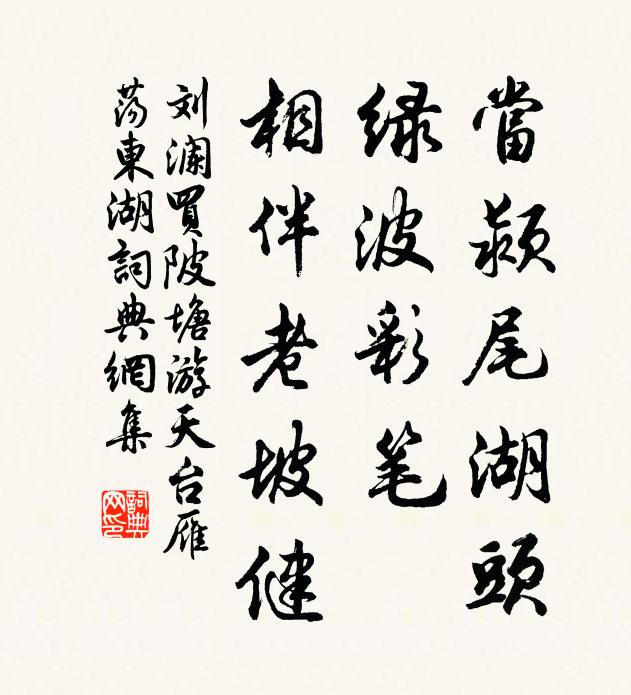 當颍尾湖頭
绿波彩笔
相伴老坡健
刘澜買陂塘游天台雁
荡東湖詞典網集
詞典
网印